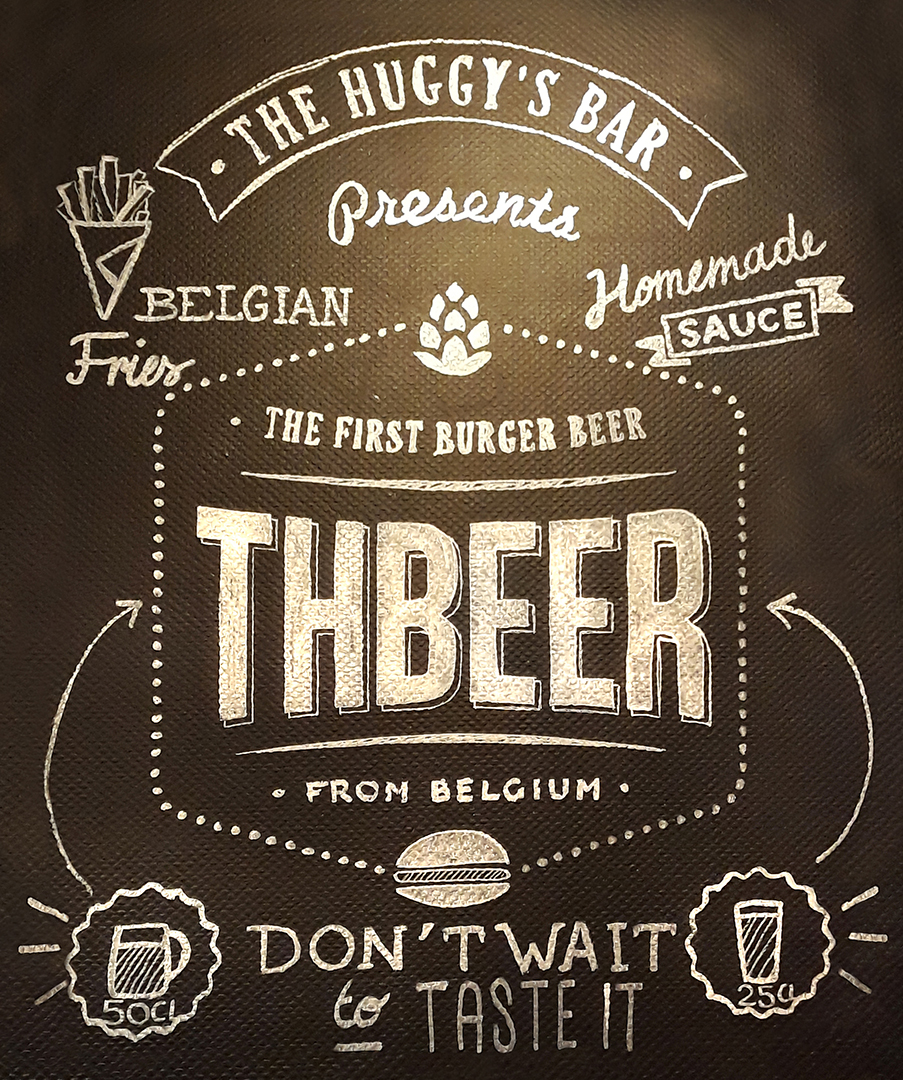 • THE HUGGY'S BAR •
Presents
BELGIAN
Fries
Homemade
SAUCE
• THE FIRST BURGER BEER
THBEER
• FROM BELGIUM •
50cl
DON'T WAIT
to TASTE IT
25cl